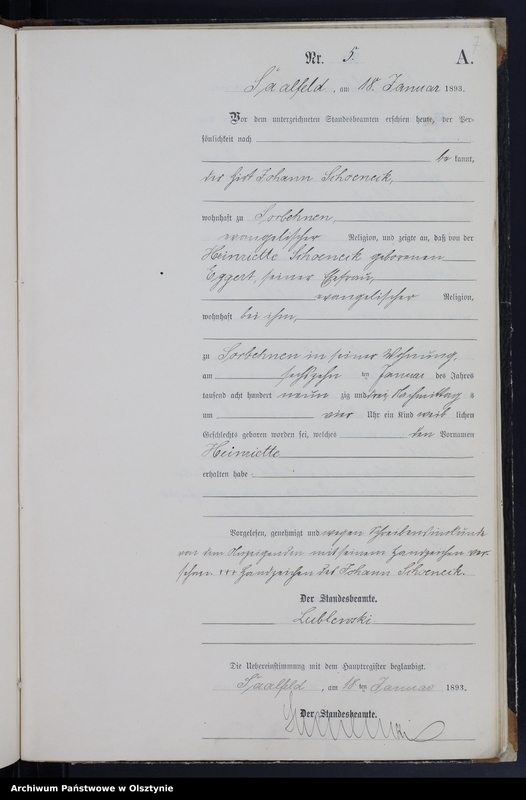 Nr. 5. A.
Saalfeld, am 18. Januar 1893.
Vor dem unterzeichneten Standesbeamten erschien heute, der Per-
sönlichkeit nach
be kannt,
der Hirt Johann Schoeneck,
wohnhaft zu Sorbehnen,
evangelischer Religion, und zeigte an, daß von der
Heinriette Schoeneck geborenen
Eggert, seiner Ehefrau,
evangelischer Religion,
wohnhaft bei ihm,
zu Sorbehnen in seiner Wohnung,
am sechszehn ten Januar des Jahres
tausend acht hundert neun zig und drei Nachmittag s
um vier Uhr ein Kind weib lichen
Geschlechts geboren worden sei, welches den Vornamen
Heinriette
erhalten habe.
Vorgelesen, genehmigt und wegen Schreibensunkunde
von dem Anzeigenden mit seinem Handzeichen ver-
sehen +++ Handzeichen des Johann Schoeneck.
Der Standesbeamte.
Lublewski
Die Uebereinstimmung mit dem Hauptregister beglaubigt.
Saalfeld, am 18 ten Januar 1893.
Der Standesbeamte.
Archiwum Państwowe w Olsztynie